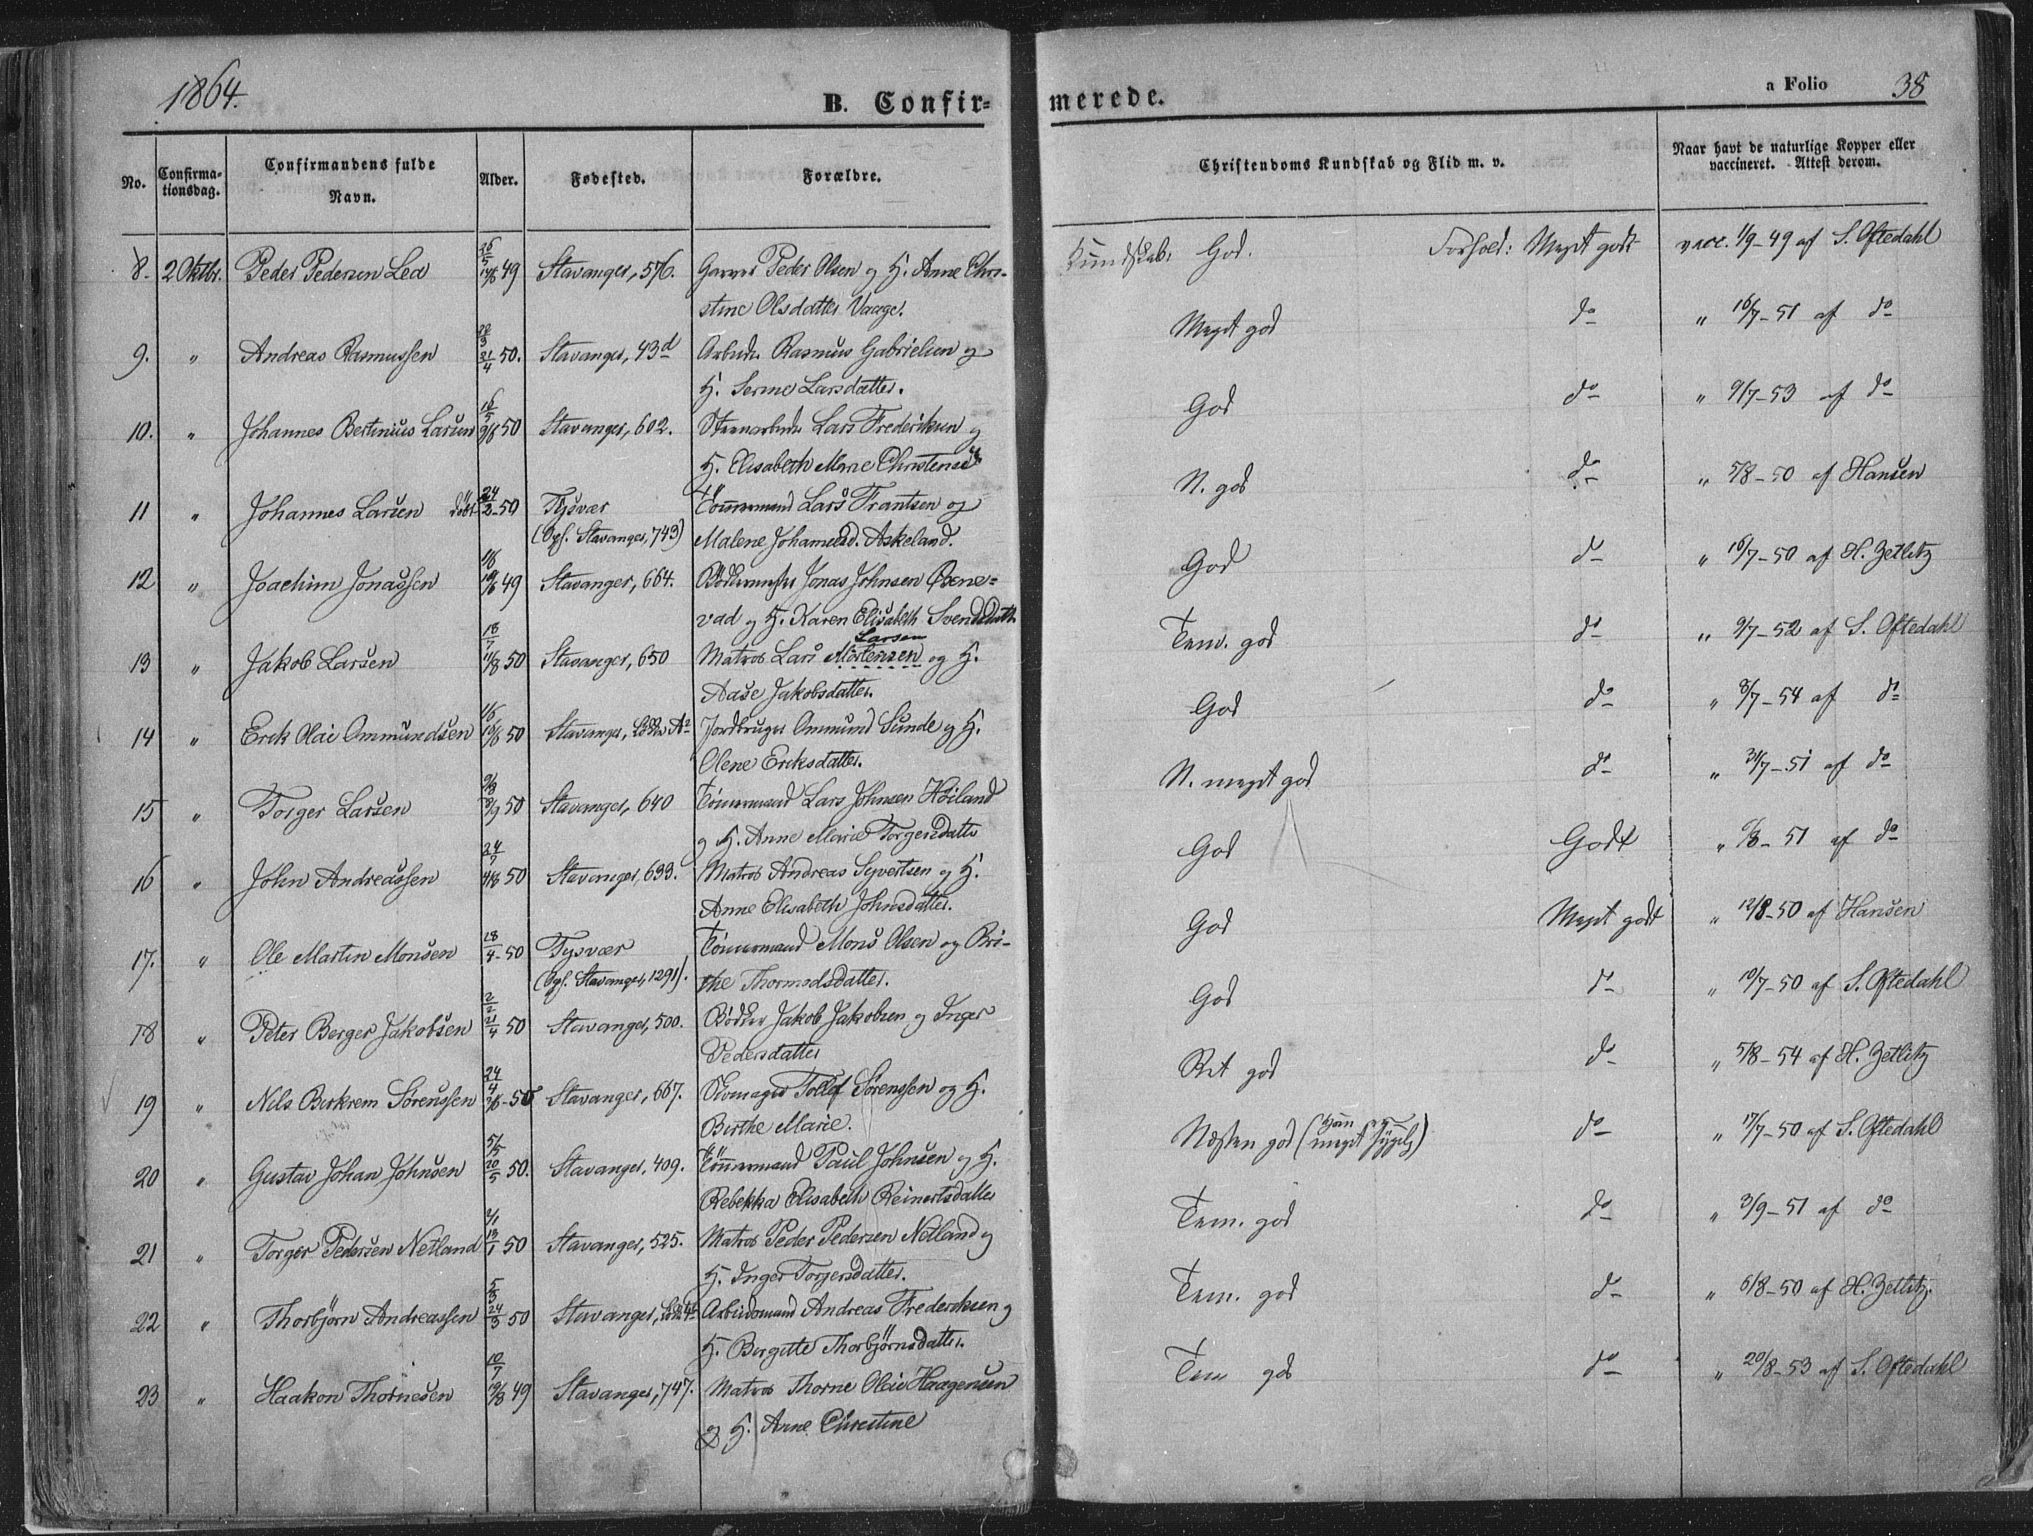 1864.
B. Confir-
merede.
a Folio 38
No.
Confirma-
tionsdag.
Confirmandens fulde
Navn.
Alder.
Fødested.
Forældre.
Christendoms Kundskab og Flid m. v.
Naar havt de naturlige Kopper eller
vaccineret. Attest derom.
8. 2 Oktbr. Peder Pedersen Lea 49 Stavanger, 576. Garver Peder Olsen og H. Anne Chri-
stine Olsdatter Vaage.
Kundskab: God. Forhold: Meget godt vacc. 1/9-49 af S. Oftedahl
9. " Andreas Rasmussen 21/4 50. Stavanger, 43d Arbeider Rasmus Gabrielsen og
H. Serine Larsdatter.
Meget god do " 16/7-51 af do
10. " Johannes Bertinius Larsen 50 Stavanger, 602. Stenarbeider Lars Frederiksen og
H. Elisabeth Marie Christense
God do " 9/7-53 af do
11 " Johannes Larsen døbt 24/2-50 Tysvær Tömmermand Lars Frantsen og
(Opf. Stavanger, 743) Malene Johannesd. Askeland.
N. god do " 5/8-50 af Hansen
12 " Joachim Jonassen 49 Stavanger, 664. Bödkermester Jonas Johnsen Øene-
vad og H. Karen Elisabeth Svendsdatter
God do " 16/7-50 af H. Zetlitz
13 " Jakob Larsen 18/7 11/8 50 Stavanger, 650 Matros Lars Mortensen og H.
Larsen
Aase Jakobsdatter.
Tem. god do " 9/7-52 af S. Oftedahl
14 " Erik Olai Ommundsen 50 Stavanger, Lökken A2 Jordbruger Ommund Sunde og H.
Olene Eriksdatter.
God do " 8/7-54 af do
15 " Torger Larsen 50 Stavanger, 640 Tömmermand Lars Johnsen Höiland
og H. Anne Marie Torgersdatter
N. meget god do " 31/7-51 af do
16 " John Andreassen 24/7 4/8 50 Stavanger, 699. Matros Andreas Syvertsen og H.
Anne Elisabeth Johnsdatter.
God Godt " 6/8-51 af do
17. " Ole Martin Monsen 28/4-50 Tysvær Tömmermand Mons Olsen og Bri-
(Opf. Stavanger, 1291). the Thormodsdatter.
God Meget godt " 12/8-50 af Hansen
18 " Peter Berger Jakobsen 2/2 21/4 50 Stavanger, 500. Bödker Jakob Jakobsen og Inger
Pedersdatter
God do " 10/7-50 af S. Oftedahl
19 " Nils Birkrem Sörenssen 24/4 50 Stavanger, 667. Skomager Tollef Sörenssen og H.
Birthe Marie.
Ret god do " 5/8-54 af H. Zetlitz
20 " Gustav Johan Johnsen 5/5 20/5 50. Stavanger, 409. Tömmermand Paul Johnsen og H.
Rebekka Elisabeth Reinertsdatter
Næsten god (meget sygelig) do " 17/7-50 af S. Oftedahl
21 " Torger Pedersen Netland 13/1 50 Stavanger, 525. Matros Peder Pedersen Netland og
H. Inger Torgersdatter.
Tem. god do " 3/9-51 af do
22 " Thorbjörn Andreassen 24/3 50 Stavanger, Arbeidsmand Andreas Frederiksen og
H. Birgitte Thorbjörnsdatter.
Tem. god do " 6/8-50 af H. Zetlitz.
23 " Haakon Thornesen 10/7 19/8 49 Stavanger, 747. Matros Thorne Olai Haagensen
og H. Anne Christine
Tem god do " 20/8-53 af S. Oftedahl